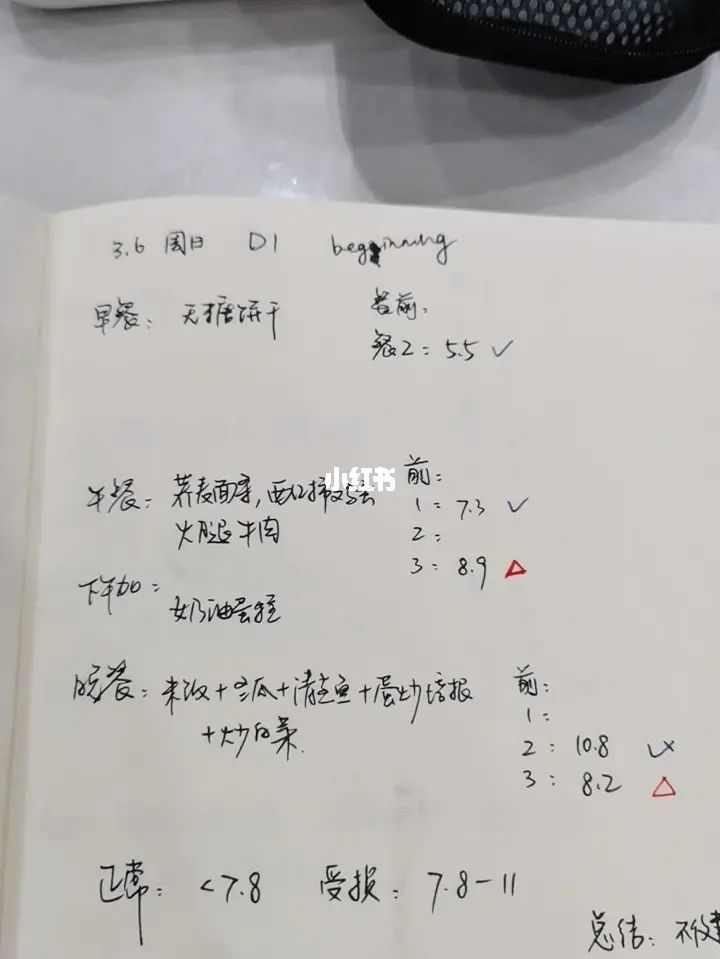 3.6 周日 D1 beginning
早餐: 无糖饼干
餐前:
餐2: 5.5 ✓
午餐: 荞麦面条,
火腿牛肉
前:
1: 7.3 ✓
2:
3: 8.9 △
下午加:
奶油蛋糕
晚餐: 米饭+冬瓜+清蒸鱼+蛋炒
+炒白菜.
前:
1:
2: 10.8
3: 8.2 △
正常: <7.8 受损: 7.8-11
总结:
小红书